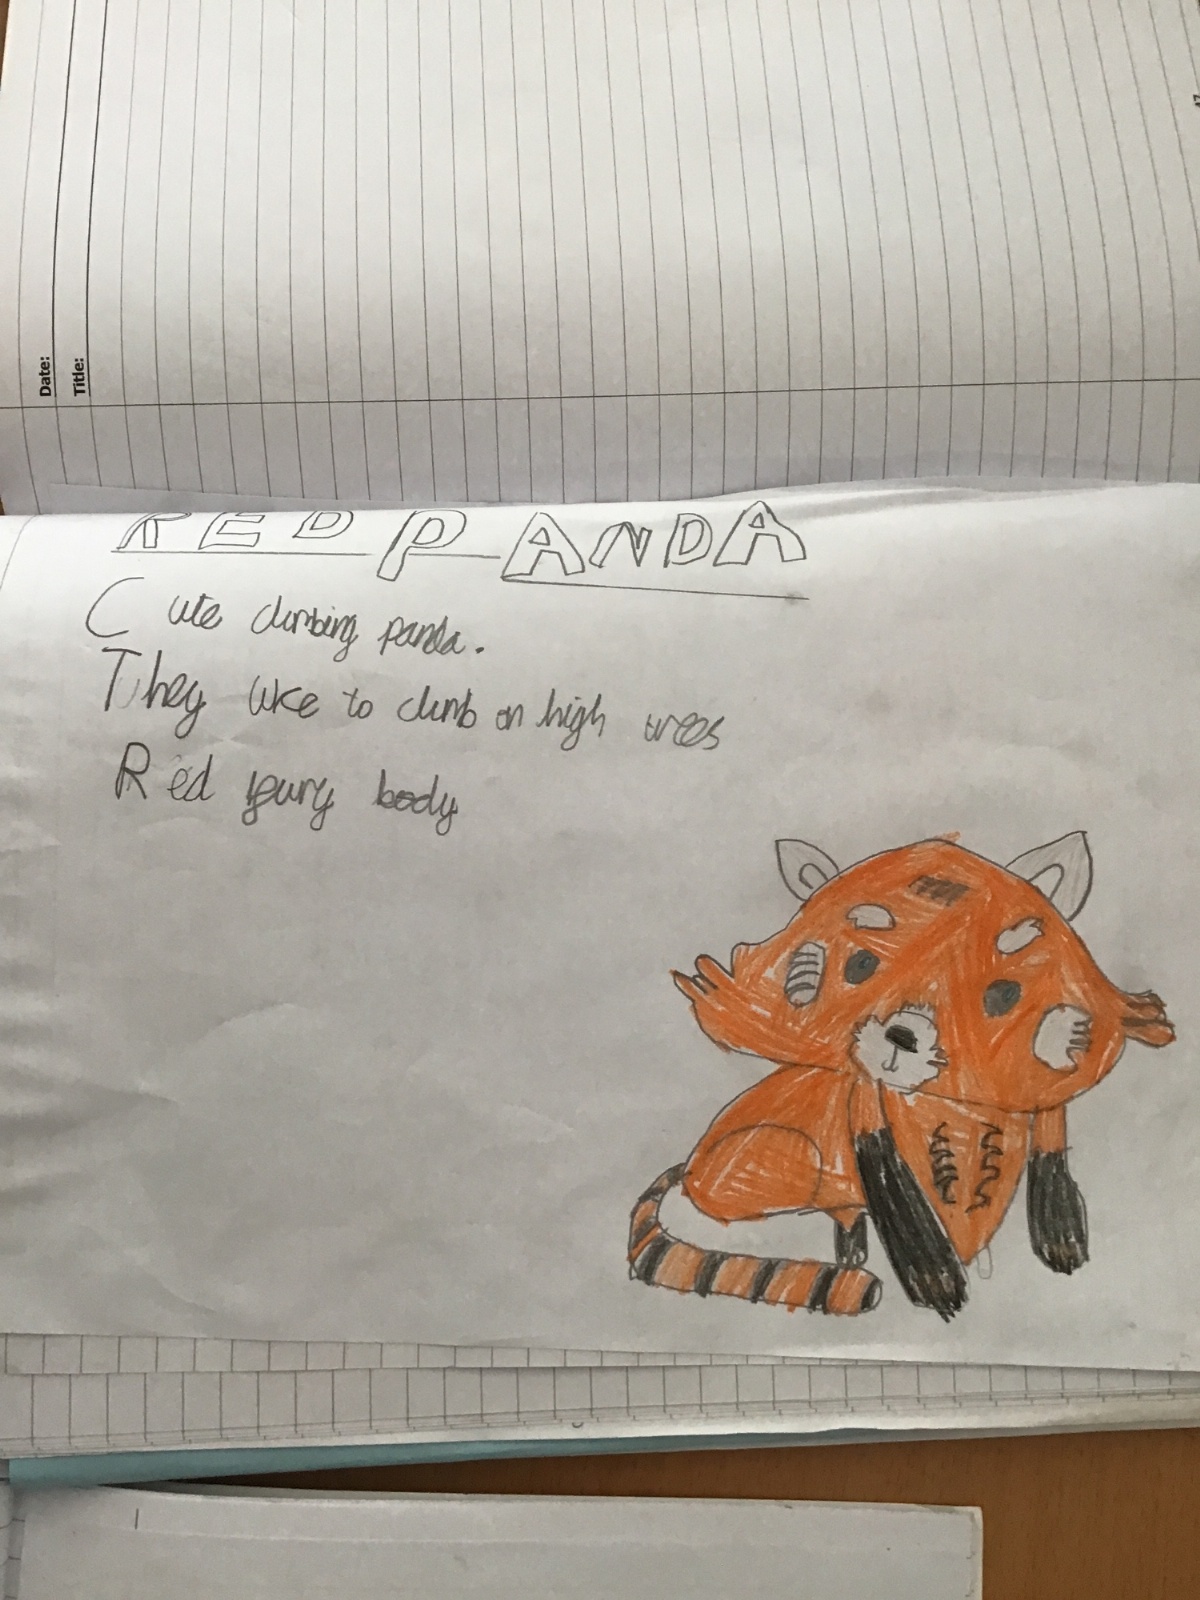 Date:
Title:
17
RED PANDA
Cute climbing panda.
They like to climb on high trees
Red body